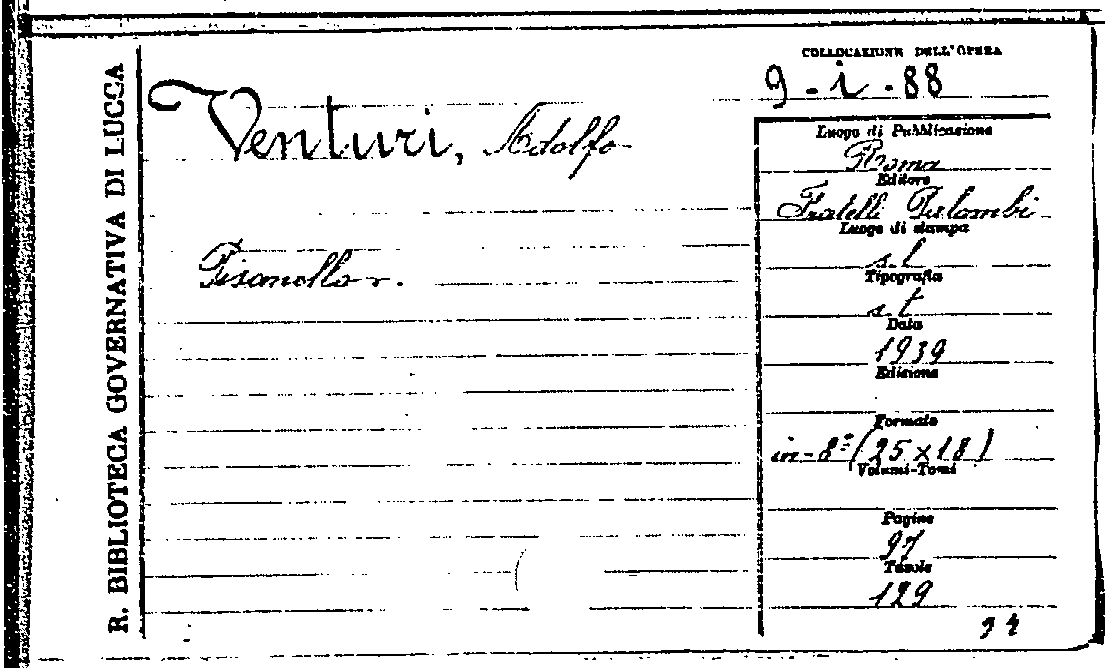 R. BIBLIOTECA GOVERNATIVA DI LUCCA
COLLOCAZIONE DELL'OPERA
9 - i - 88
Venturi, Adolfo
Pisanello
Luogo di Pubblicazione
Roma
Editore
Fratelli Palombi
Luogo di stampa
s. l
Tipografia
s. t
Data
1939
Edizione
Formato
in-8º (25 x 18)
Volumi-Tomi
Pagine
97
Tavole
129
94